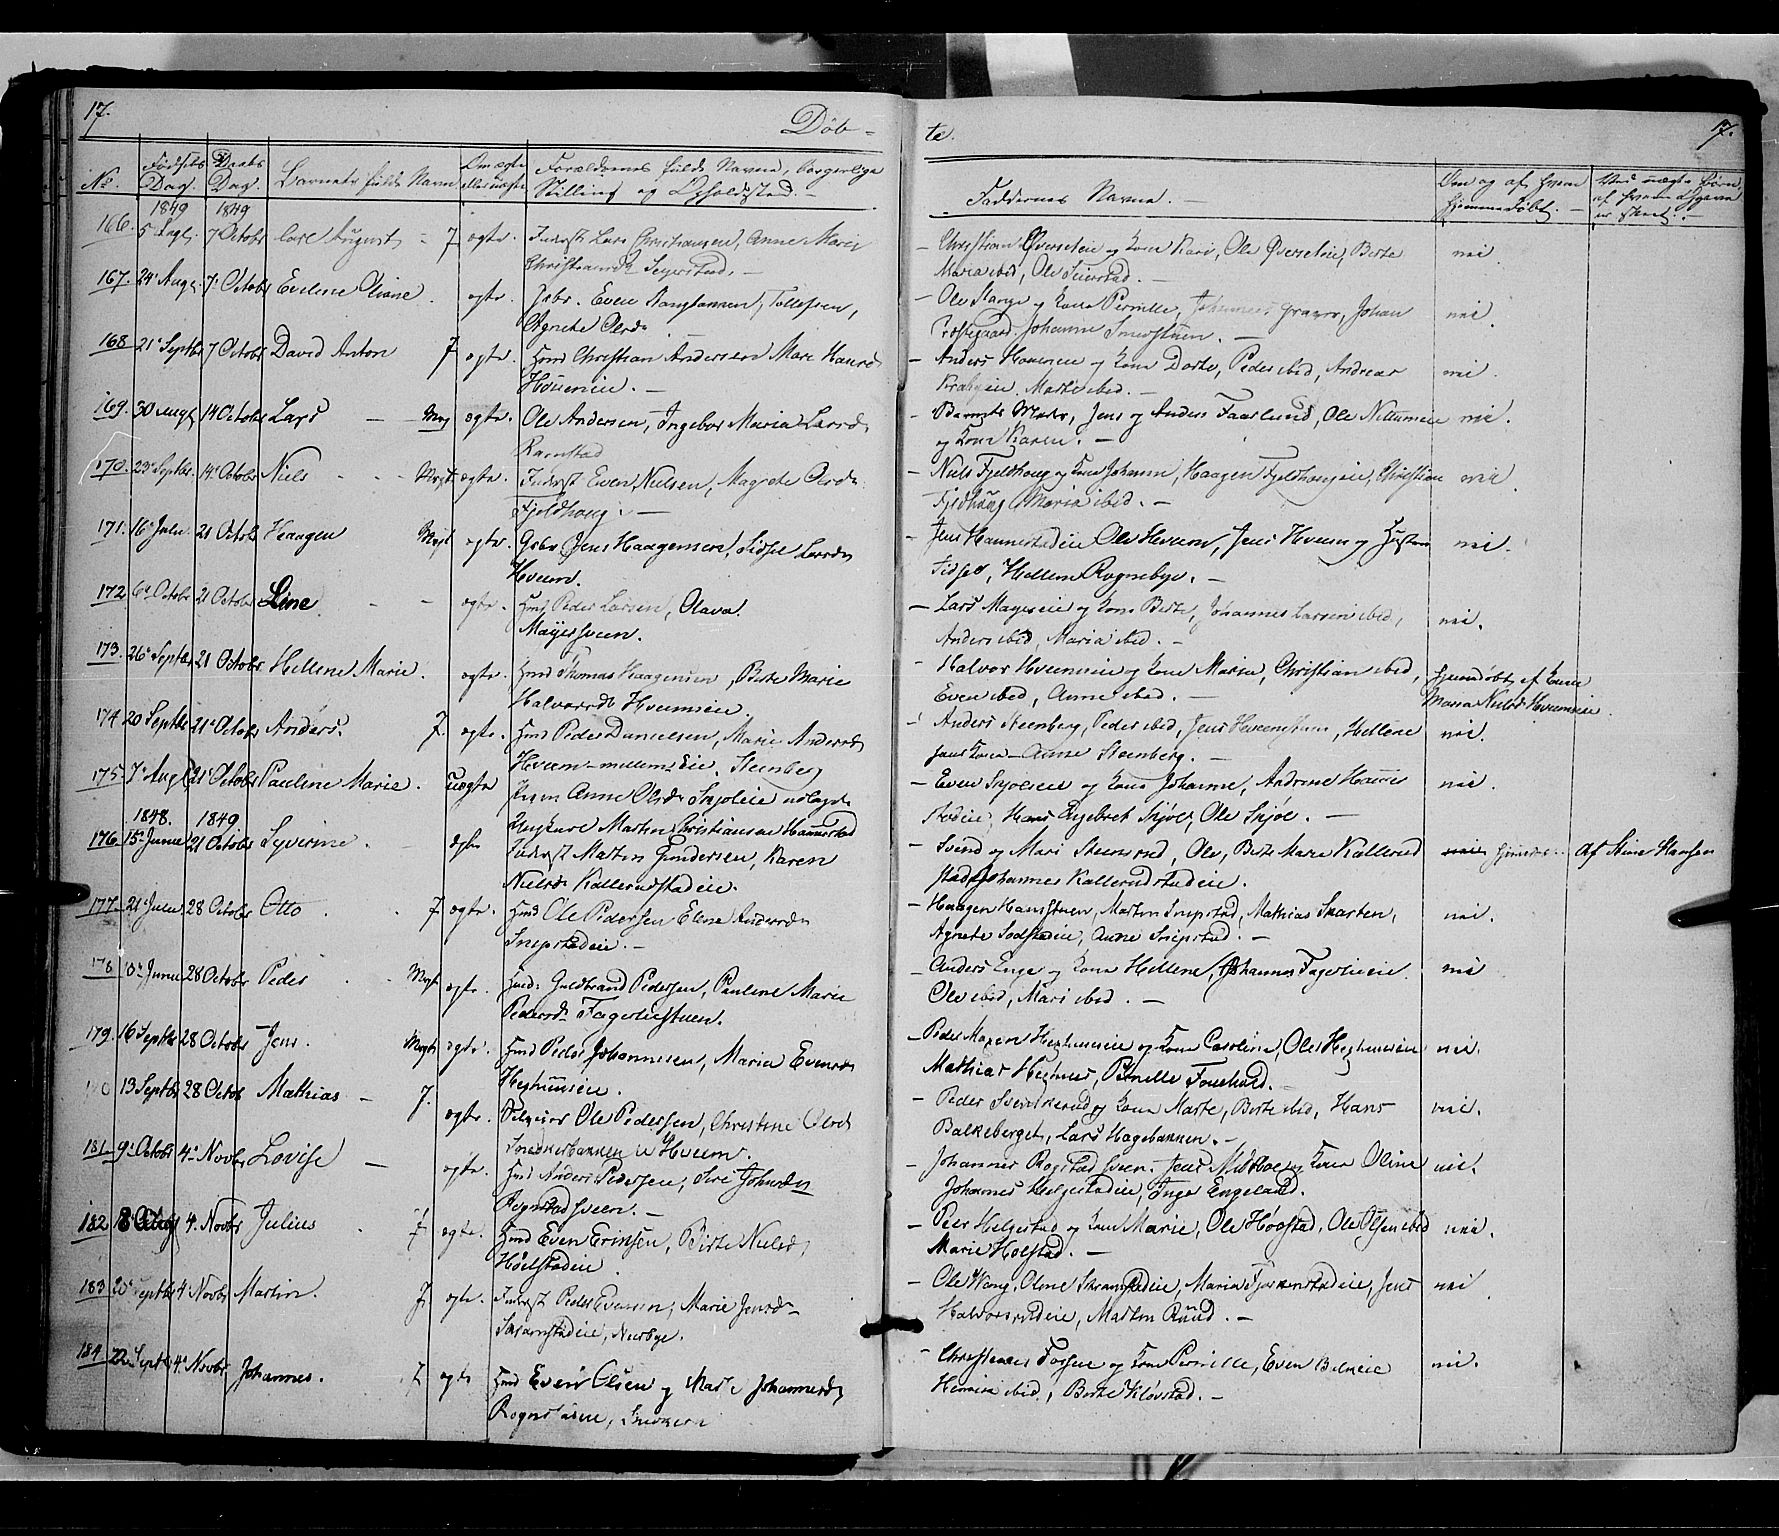 17.
Døb-
te.
17.
No.
Fødsels Dag.
Daabs Dag.
Barnets fulde Navn
Om ægte eller uægte
Forældrenes fulde Navne, borgerlige
Stilling og Opholdssted. -
Faddernes Navne. -
Om og af hvem
hjemmedøbt. -
Ved uægte Børn,
af hvem Opgaven
er skeet. -
1849 1849
166. 5 Augt 7 Octobr Carl August - J ægte. Inderst Lars Christiansen, Anne Marie
Christiansdr Seyerstad. -
- Christian Øverseteie og Kone Kari, Ole Øverseteie, Berte
Maria ibid, Ole Seierstad. - nei
167. 24 Augt 7 Octobr Eveline Oliane. ægte. Gbr. Even Stangstuen, Tollefsen,
Agnete Olsdr
- Ole Stange og Kone Pernille, Johannes Graver, Johan
Præstegaard. Johanne Smedstuen. - nei.
168 21 Septbr 7 Octobr David Anton J ægte. Huusm Christian Andersen Mari Hansdr
Houmeie. -
- Anders Houmeie og Kone Dorte, Peder ibid, Andreas
Krabyeie. Marte ibid. - nei.
169. 30 Augt 14 Octobr Lars - Mgt ægte. Ole Andersen, Ingebor Maria Larsdr
Ramstad
- Barnets Moder, Jens og Anders Faarlund, Ole Nettumeie
og Kone Karen. - nei.
170. 23 Septbr. 14 Octobr Niels - - Mgt ægte. Inderst Even Nielsen, Magrete Olsdr
Fjeldhoug. -
- Niels Fjeldhoug og Kone Johanne, Haagen Fjeldhougeie, Christian
Fjeldhoug Maria ibid. - nei.
171. 16 Julii 21 Octobr Haagen Mgt ægte. Gbr Jens Haagensen, Sidsel Larsdr
Hveem.
- Jens Hannestadeie Ole Hveem, Jens Hveem og Hustru
Sidsel, Hellene Rognebye. - nei.
172 6 Octobr 21 Octobr Line - - ægte. Huusm Peder Larsen, Olava.
Mayersveen.
- Lars Mayereie og Kone Berte, Johannes Larsen ibid,
Anders ibid, Maria ibid. - nei.
173. 26 Septbr 21 Octobr Hellene Marie. ægte. Huusm Thomas Haagensen, Berte Marie
Halvorsdr Hveemeie.
- Halvor Hveemeie og Kone Maria, Christian ibid,
Even ibid, Anne ibid. - hjemdøbt af Kone
Maria Nielsdr Hveemeie
174 20 Septbr 21 Octobr Anders. J. ægte. Huusm Peder Danielsen, Marie Andersdr
Hveem-mellem Eie. Steenberg
- Anders Steenberg, Peder ibid, Jens Hveemstuen, Hellene
hans Kone - Anne Steenberg. - nei.
175. 7 Augt 21 Octobr Pauline Marie. uægte Pigen Anne Olsdr Skjoleie udlagde
Ungkarl Martin Christiansen Hannestad
- Even Skjoleie og Kone Johanne, Andrine Hannestadeie, Hans Engebret Skjøl, Ole Skjøl. - nei.
1848. 1849
176. 15 Junii 21 Octobr Syverine. - ægte Inderst Matten Gundersen, Karen
Nielsdr Kallerudstadeie.
- Svend og Mari Steensrud, Ole, Berte Mari Kallerud
stad, Johannes Kallerudstadeie. nei hjemdøbt. Af Stine Hansen
177. 21 Julii 28 Octobr Otto. . J ægte. Huusm Ole Pedersen Eline Andersdr
Snipstadeie. -
- Haagen Hansstuen, Marten Snipstad, Mathias Skarten,
Agnete Sodstadeie, Anne Snipstad. - nei.
178. 10 Junii 28 Octobr Peder . - Mgt ægte. Huusm: Guldbrand Pedersen, Pauline Marie
Pedersdr Fagerliestuen.
- Anders Enge og Kone Hellene, Johannes Fagerlieeie
Ole ibid, Mari ibid. - nei
179. 16 Septbr 28 Octobr Jens. Mgt ægte. Huusm Peder Johannesen, Maria Evensdr
Heghuuseie.
- Peder Moxen Heghuuseie og Kone Caroline, Ole Heghuuseie
Mathias Heghuus, Pernille Fonehold. - nei.
180 13 Septbr 28 Octobr Mathias - J. ægte. Ole Pedersen, Christine Olsdr
Snedkerbakken u/Hveem.
- Peder Svenkerud og Kone Marte, Berte ibid, Hans
Balkeberget, Lars Hagebakken. - nei.
181. 9 Octobr 4 Novbr Lovise - ægte. Huusm Anders Pedersen, Siri Johnsdr
Rognstadsveen. -
- Johannes Rogstadsveen. Jens Midboe og Kone Oline
Johannes Helgestadeie, Inge Engeland. nei.
182 8 Octobr 4 Novbr Julius J ægte. Huusm Even Erinsen, Birte Nielsdr
Hoelstadeie
- Peer Helgestad og Kone Marie, Ole Høvstad, Ole Olsen ibid
Marie Holstad. - nei.
183 20 Septbr 4 Novbr Martin. J. ægte. Inderst Peder Evensen, Marie Jensdr
Skramstadeie, Neerbye.
- Ole Wang, Anne Skramstadeie, Maria Fjærkenstadeie, Jens
Halvorsrudeie, Marten Ruud. - nei
184. 22 Septbr 4 Novbr Johannes. J ægte Huusm Even Olsen og Marte Johannesdr
Rognstadeie, Snekkeri
- Christianes Fossen og Kone Pernille, Even Balkeie
Henrik ibid, Berte Kløvstad. - nei.